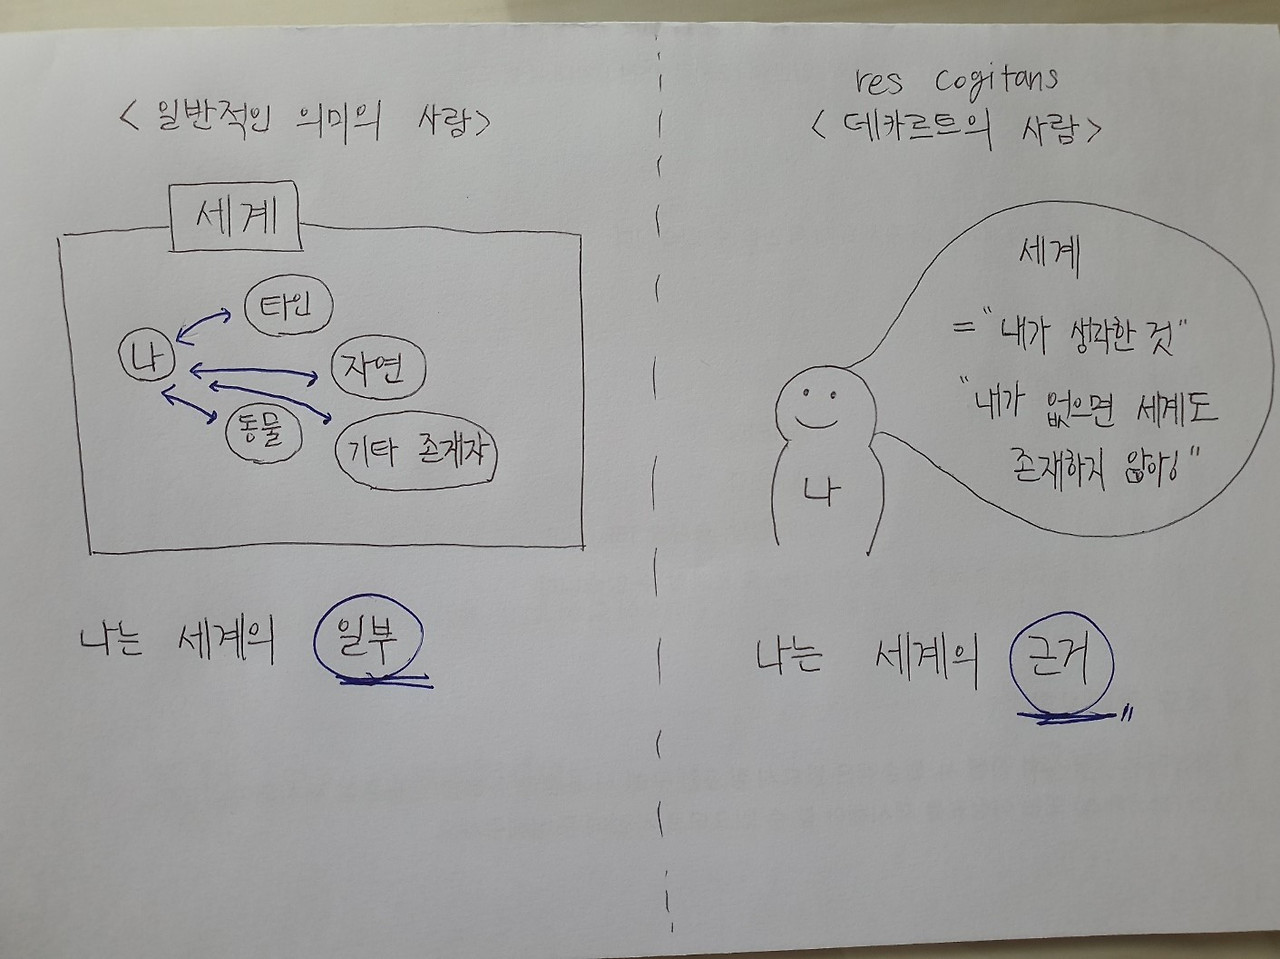 <일반적인 의미의 사람>
세계
나
타인
자연
동물
기타 존재자
나는 세계의 일부
res cogitans
<데카르트의 사람>
세계
= "내가 생각한 것"
"내가 없으면 세계도
존재하지 않아!"
나
나는 세계의 근거